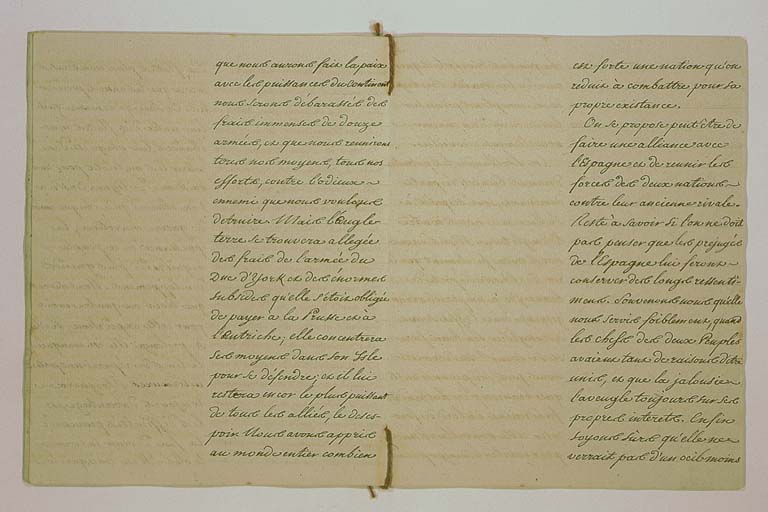 que nous aurons fait la paix
avec les puissances du continent
nous serons débarassés des
frais immenses de douze
armées, et que nous reunirons
tous nos moyens, tous nos
efforts, contre l'odieux
ennemi que nous voulons
detruire. Mais l'Angle-
terre se trouvera allegée
des frais de l'armée du
Duc d'York et des énormes
subsides qu'elle s'étoit obligée
de payer à la Prusse et à
l'Autriche; elle concentrera
ses moyens dans son Isle
pour se défendre; et il lui
restera encor le plus puissant
de tous les alliés, le deses-
poir. Nous avons appris
au monde entier combien
est forte une nation qu'on
reduit à combattre pour sa
propre existance.
On se propose peut être de
faire une alliance avec
l'Espagne et de reunir les
forces des deux nations
contre leur ancienne rivale.
Reste à savoir si l'on ne doit
pas penser que les prejugés
de l'Espagne lui feront
conserver des longs ressenti-
mens. Souvenons nous qu'elle
nous servis foiblement, quand
les chefs des deux Peuples
avaient tant de raisons d'être
unis, et que la jalousie
l'aveugle toujours sur ses
propres interets. Enfin
soyons sûrs qu'elle ne
verrait pas d'un oeil moins